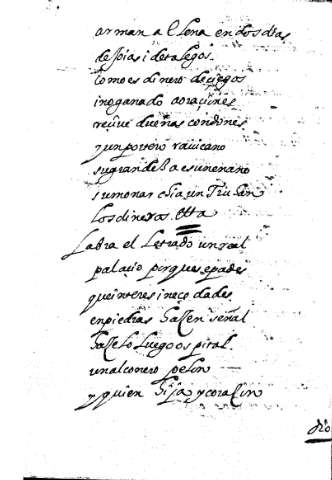 arman a Elena en dos dias
de joias i de talegos.
como es dinero de ciegos
i no ganado a oraciones
recive dueñas con dones
y un portero ravicano
su grandeza es un enano
su monarchia un Truhan
los dineros. etta
Labra el Letrado un real
palacio porque sepades
que interes i necedades
en piedras hacen señal
hacelo luego ospital
un alconero pelon
a quien hija y coraçon
dio